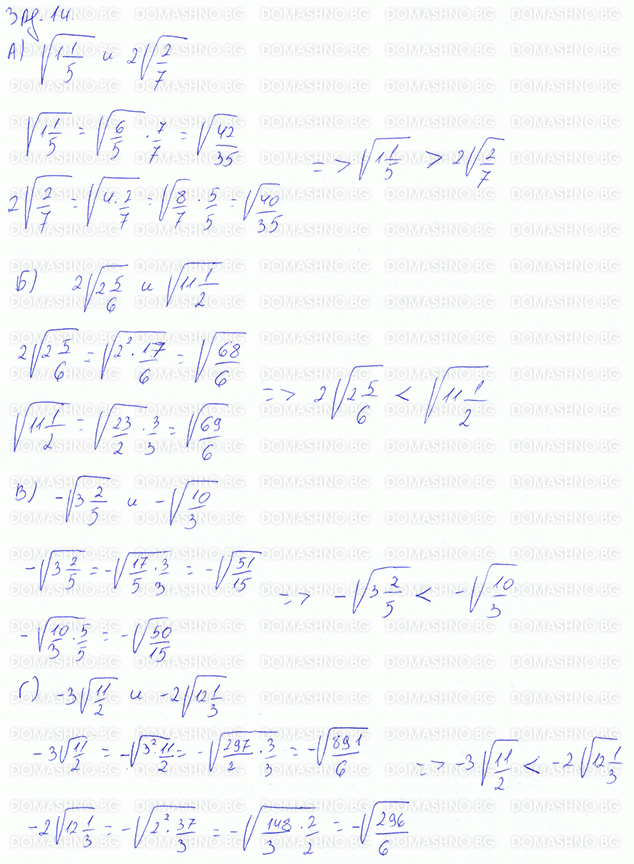 Зад. 14
А) √(1 1/5) и 2√(2/7)
√(1 1/5) = √(6/5 · 7/7) = √(42/35)
=> √(1 1/5) > 2√(2/7)
2√(2/7) = √(4 · 2/7) = √(8/7 · 5/5) = √(40/35)
Б) 2√(2 5/6) и √(11 1/2)
2√(2 5/6) = √(2² · 17/6) = √(68/6)
=> 2√(2 5/6) < √(11 1/2)
√(11 1/2) = √(23/2 · 3/3) = √(69/6)
В) -√(3 2/5) и -√(10/3)
-√(3 2/5) = -√(17/5 · 3/3) = -√(51/15)
=> -√(3 2/5) < -√(10/3)
-√(10/3 · 5/5) = -√(50/15)
Г) -3√(11/2) и -2√(12 1/3)
-3√(11/2) = -√(3² 11/2) = -√(297/2 · 3/3) = -√(891/6)
=> -3√(11/2) < -2√(12 1/3)
-2√(12 1/3) = -√(2² · 37/3) = -√(148/3 · 2/2) = -√(296/6)
DOMASHNO.BG